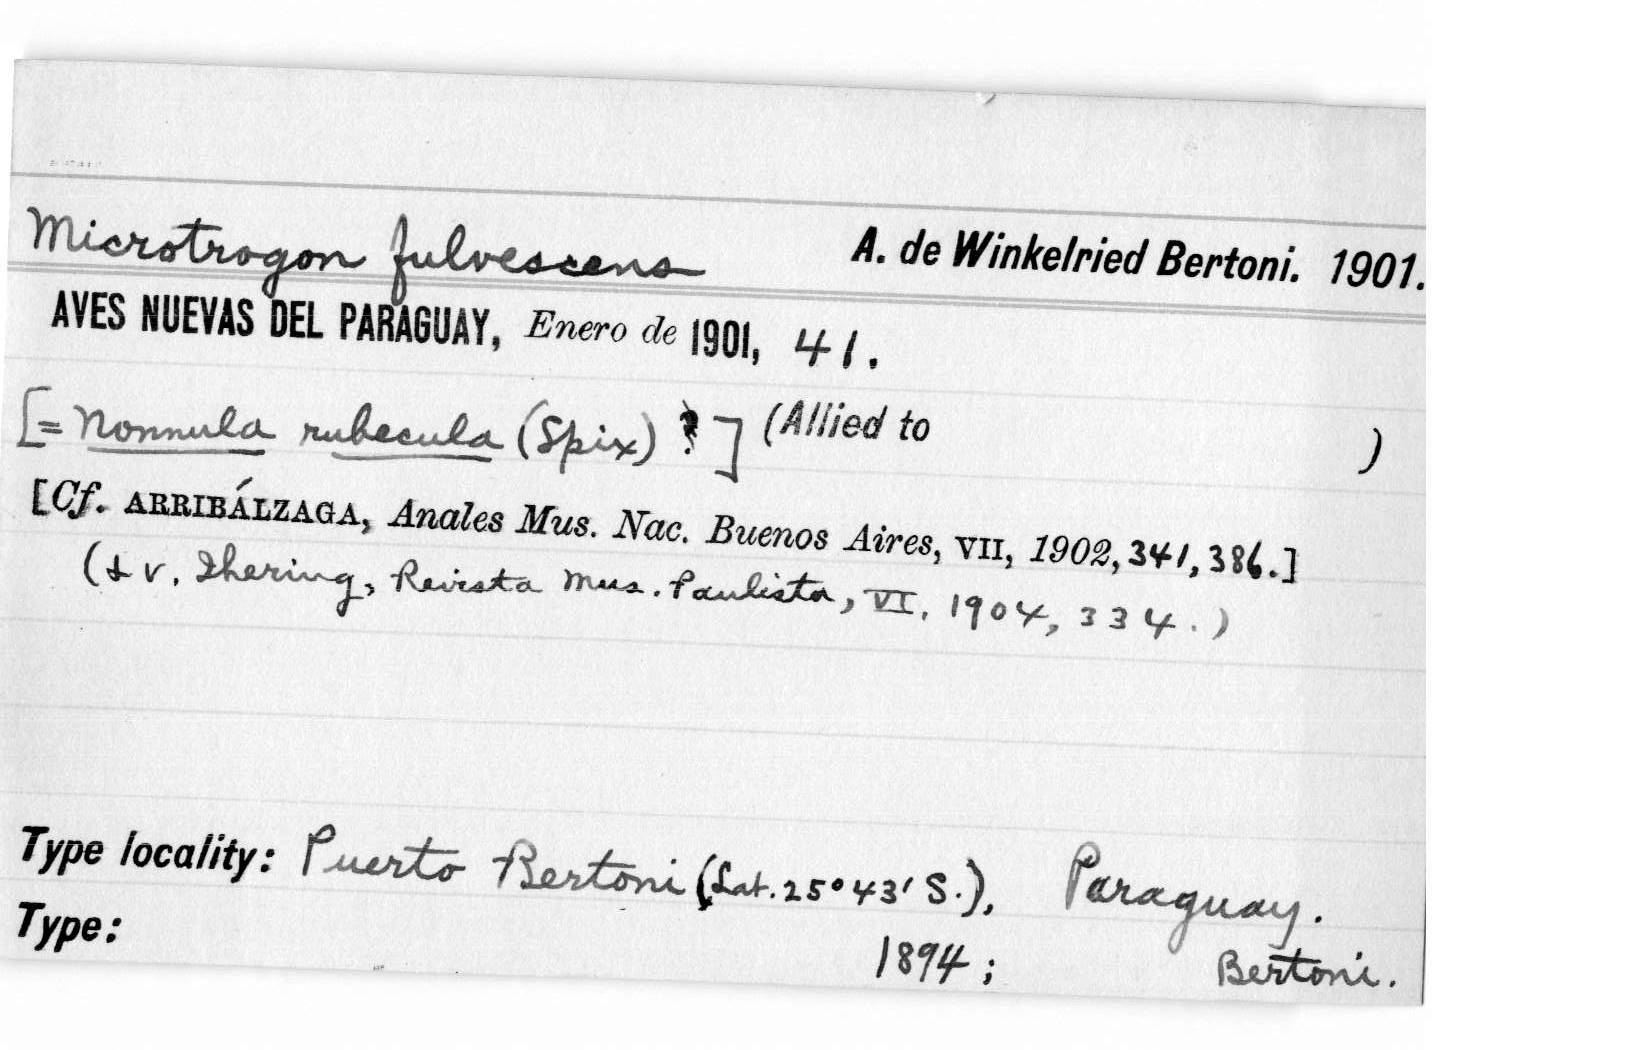 Microtrogon fulvescens A. de Winkelried Bertoni. 1901.
AVES NUEVAS DEL PARAGUAY, Enero de 1901, 41.
[= Nonnula rubecula (Spix) ?] (Allied to )
[Cf. ARRIBÁLZAGA, Anales Mus. Nac. Buenos Aires, VII, 1902, 341, 386.]
(& v. Ihering, Revista Mus. Paulista, VI, 1904, 334.)
Type locality: Puerto Bertoni (Lat. 25° 43' S.), Paraguay.
Type: 1894; Bertoni.